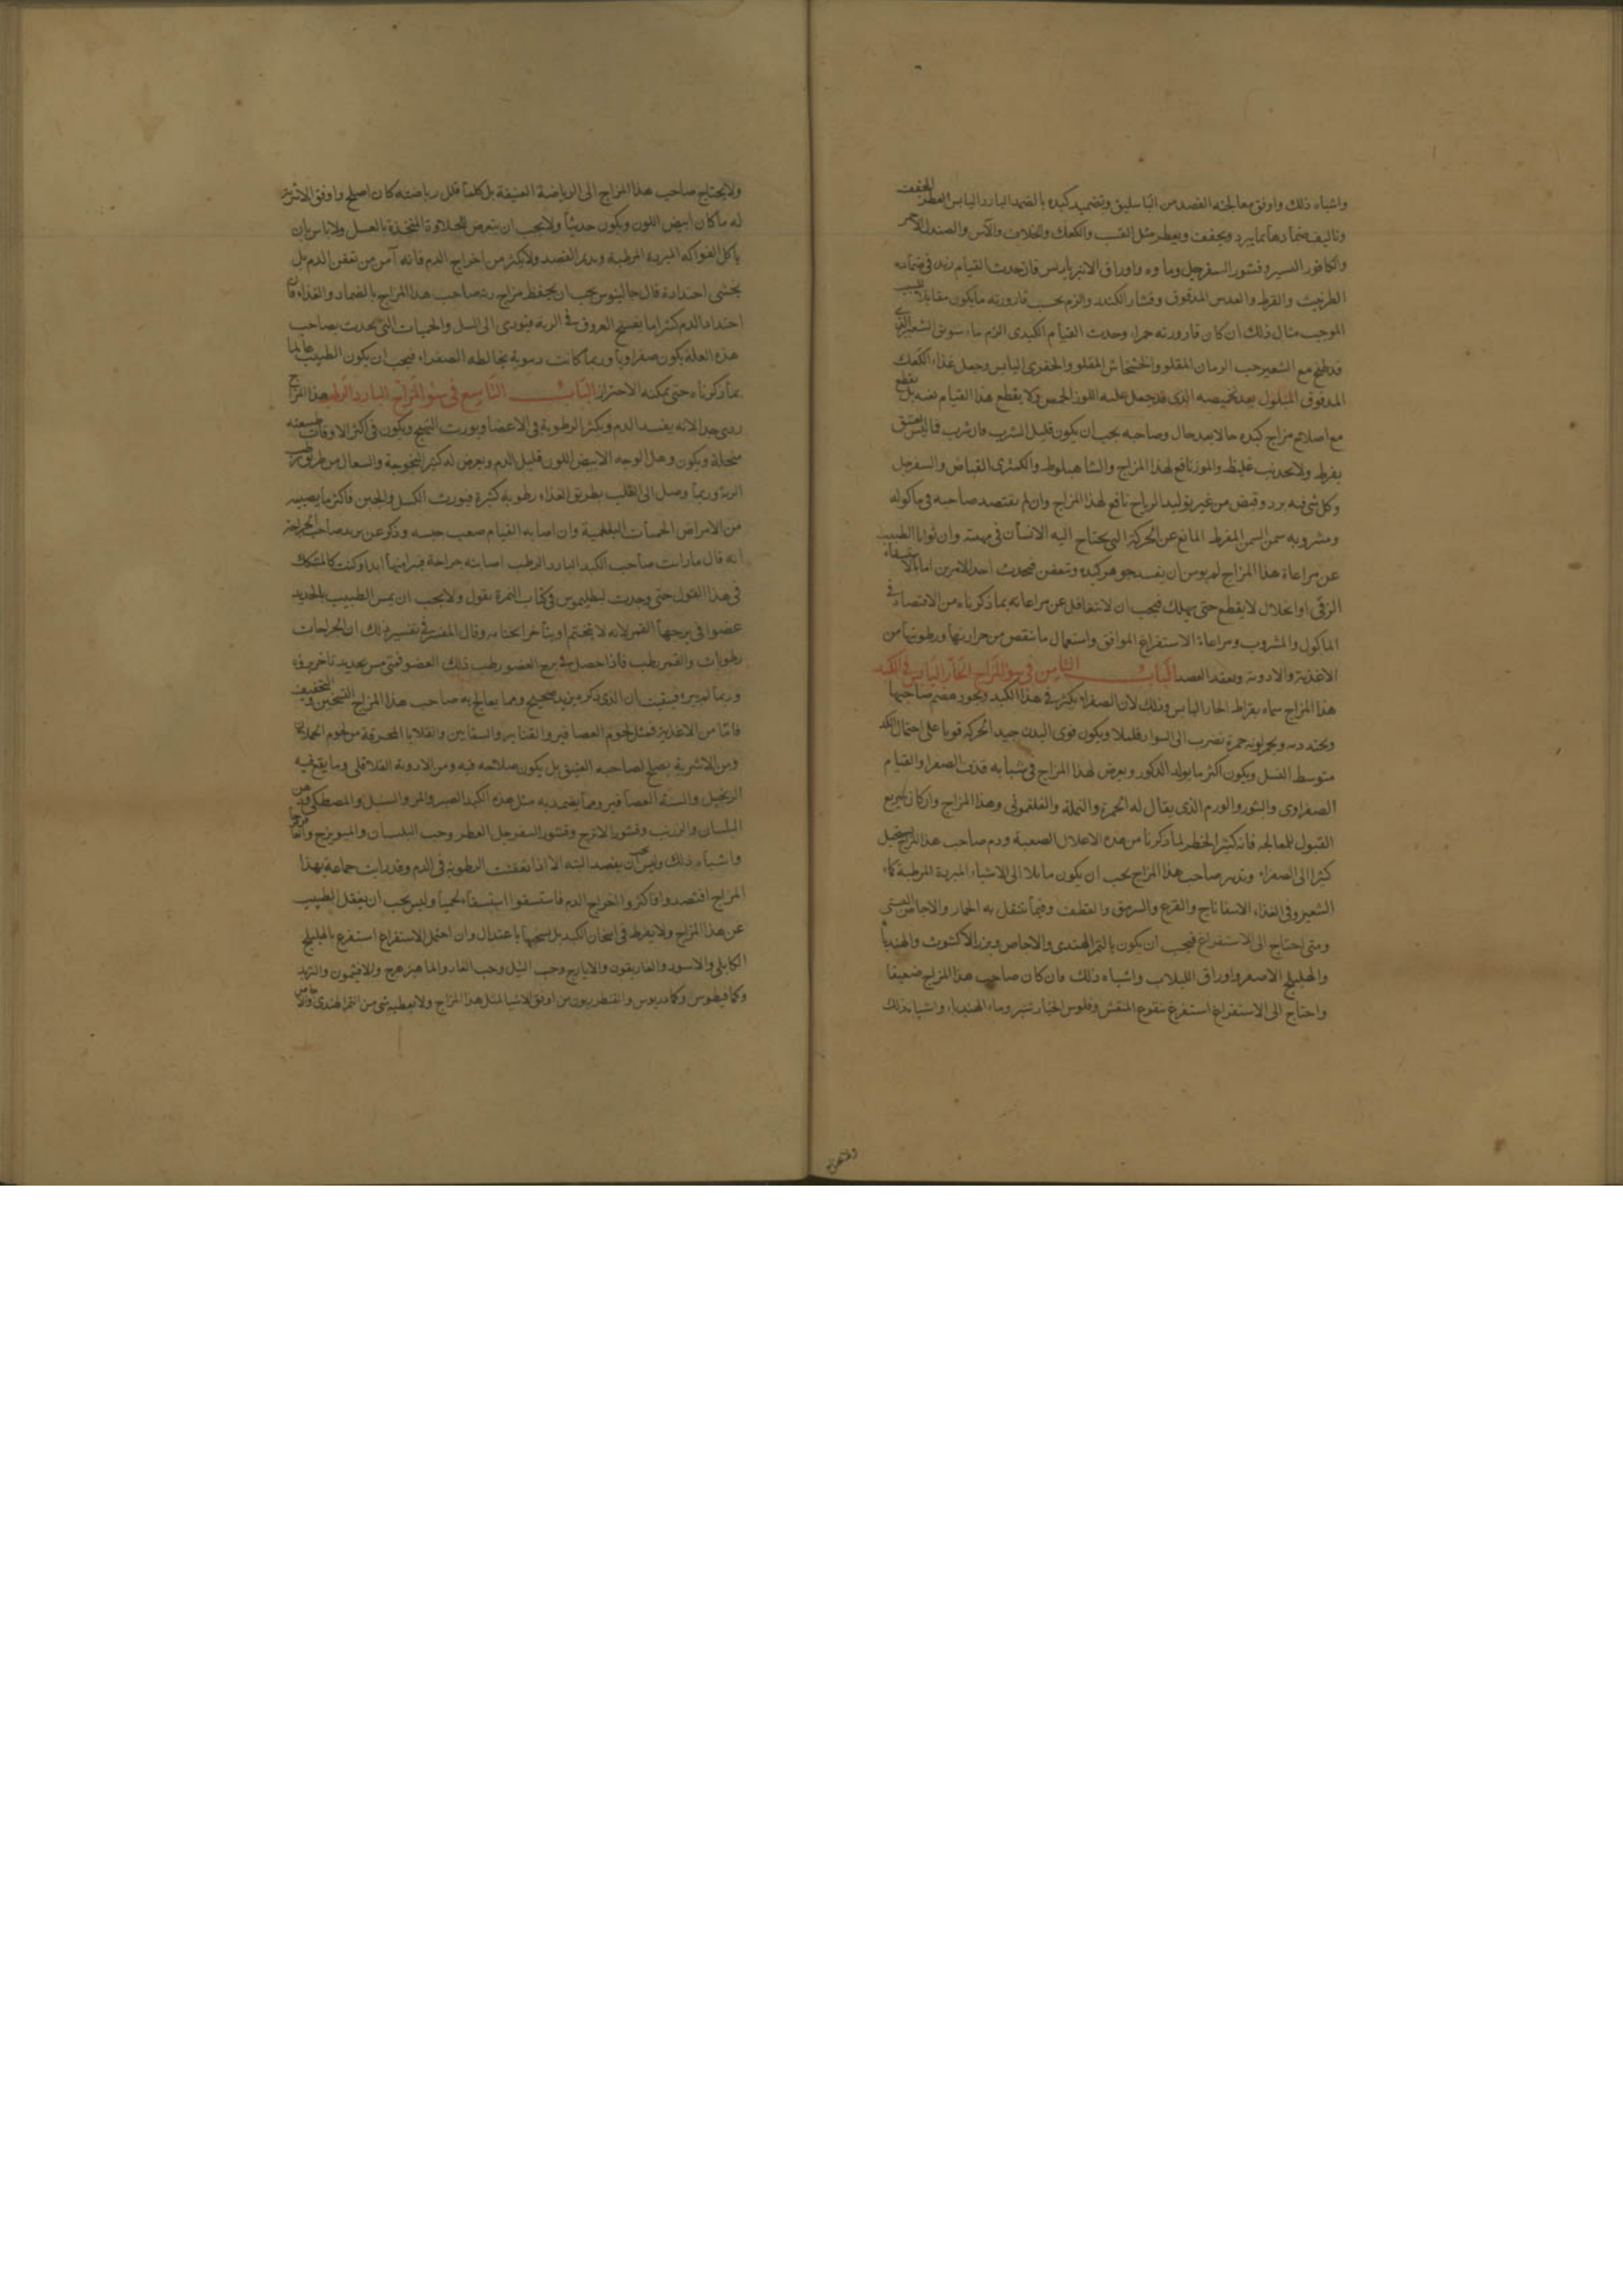 واشباه ذلك واوفق معالجته الفصد من الباسليق وتضميد كبده بالضمد البارد اليابس العطر المجفف
وتاليف ضمادها بما يبرد ويجفف ويعطر مثل القسب والكعك والخلاف والآس والصندل الاحمر
والكافور اليسير وقشور السفرجل وماوه واوراق الانبرباريس فان حدث القيام زيد في ضماده
الطرثيث والقرظ والعدس المدقوق وقشار الكندر والزم بحسب قارورته ما يكون مقابلا للسبب
الموجب مثال ذلك ان كان قارورته حمراء وحدث القيام الكبدى الزم ماء سويق الشعير الذى
قد طبخ مع الشعير حب الرمان المقلو والخشخاش المقلو اليابس وجعل غذاه الكعك
المدقوق المبلول بعد تحميصه الذى قد جعل عليه اللوز المحمص ولا يقطع هذا القيام نفسه بل يقطع
مع اصلاح مزاج كبده حالا بعد حال وصاحبه يجب ان يكون قليل الشرب فان شرب فاليس بعتيق
بفرط ولا بحديث غليظ والموز نافع لهذا المزاج والشاهبلوط والكمثرى القباض والسفرجل
وكل شى فيه برد وقبض من غير توليد الرياح نافع لهذا المزاج وان لم يقتصد صاحبه في ماكوله
ومشروبه سمن السمن المفرط المانع عن الحركة التى يحتاج اليه الانسان في مهنته وان توانا الطبيب
عن مراعاة هذا المزاج لم يومن ان يفسد جوهر كبده وتعفن فيحدث احد الامرين اما بالاستسقاء
الزقى او انحلال لا يقطع حتى يهلك فيجب ان لا تتغافل عن مراعاته بما ذكرناه من الاقتصاد في
الماكول والمشروب ومراعاة الاستفراغ الموافق واستعمال ما ينقص من حرارتها ورطوبتها من
الاغذية والادوية وبعقد الفصد الباب الثامن في سوء المزاج الحار اليابس في الكبد
هذا المزاج سماه بقراط الحار اليابس وذلك لان الصفراء يكثر في هذا الكبد ويجود هضم صاحبها
ويحتد دمه ويحمر لونه حمرة تضرب الى السواد قليلا ويكون قوى البدن جيد الحركة قويا على احتمال الكد
متوسط النسل ويكون اكثر ما يولد الذكور ويعرض لهذا المزاج في شبابه قذف الصفرا والقيام
الصفراوى والبثور والورم الذى يقال له الحمرة والنملة والفلغمونى وهذا المزاج وان كان سريع
القبول للمعالجه فانه كثير الخطر لما ذكرنا من هذه الاعلال الصعبة ودم صاحب هذا المزاج يستحيل
كثيرا الى الصفراء وتدبير صاحب هذا المزاج يجب ان يكون مايلا الى الاشياء المبردة المرطبة كماء
الشعير وفي الغذاء الاسفاناخ والقرع والسرمق والقطف وفيما يتنقل به الخيار والاجاص البستى
ومتى احتاج الى الاستفراغ فيجب ان يكون بالتمر الهندى والاجاص وبزر الاكشوث والهندبا
والهليلج الاصفر واوراق اللبلاب واشباه ذلك وان كان صاحب هذا المزاج ضعيفا
واحتاج الى الاستفراغ استفرغ بنقوع المشمش وفلوس الخيارشنبر وماء الهندباء واشباه ذلك
ولا يحتاج
ولا يحتاج صاحب هذا المزاج الى الرياضة العنيفة بل كلما قلل رياضته كان اصلح واوفق الاشربة
له ما كان ابيض اللون ويكون حديثا ولا يجب ان يتعرض للحلاوة المتخذة بالعسل ولا باس بان
ياكل الفواكه المبردة المرطبة ويدمن الفصد ولا يكثر من اخراج الدم فانه آمن من تعفن الدم بل
يخشى احتداده قال جالينوس يجب ان يحفظ مزاج رية صاحب هذا المزاج بالضماد والغذاء فان
احتداد الدم كثيرا ما يفسخ العروق في الرية فيودى الى السل والحميات التى تحدث بصاحب
هذه العلة يكون صفراويا وربما كانت دموية يخالطه الصفراء فيجب ان يكون الطبيب عالما
بما ذكرناه حتى يمكنه الاحتراز الباب التاسع في سوء المزاج البارد الرطب هذا المزاج
ردى جدا لانه يفسد الدم ويكثر الرطوبة في الاعضا ويورث التهيج ويكون في اكثر الاوقات طبيعته
منحلة ويكون رهل الوجه الابيض اللون قليل الدم ويعرض له كثير البحوحة والسعال من طريق رطوبة
الرية وربما وصل الى القلب بطريق الغذاء رطوبة كثيرة فيورث الكسل والجبن فاكثر ما يصيبه
من الامراض الحميات البلغمية وان اصابه القيام صعب حبسه وذكر عن صاحب الجراحة
انه قال ما رايت صاحب الكبد البارد الرطب اصابته جراحة فبرا منها ابدا وكنت كالمتشكك
في هذا القول حتى وجدت لبطليموس في كتاب الثمرة يقول ولا يجب ان يمس الطبيب بالحديد
عضوا في برجها القمر لانه لا يختتم او يتاخر اختتامه وقال المفسر في تفسير ذلك ان الجراحات
رطوبات والقمر يرطب فاذا حصل في برج العضو رطب ذلك العضو فمتى مس بحديد تاخر برؤه
وربما لم يبر فتيقنت ان الذى ذكر صحيح ومما يعالج به صاحب هذا المزاج التسخين والتجفيف
فاما من الاغذية فمثل لحوم العصافير والقنابر والسفايين والقلايا المحرقة من لحوم الحملان
ومن الاشربة يصلح لصاحبه العتيق بل يكون صلاحه فيه ومن الادوية الفلافلى وما يقع فيه
الزنجبيل والسنة العصافير ومما يضمد به مثل هذه الكبد الصبر والمر والسنبل والمصطكى ودهن
البلسان والزرنب وقشور الاترج وقشور السفرجل العطر وحب البلسان والميويزج والعاقرقرحا
واشباه ذلك وليس يجب ان يفصد البته الا اذا تعفنت الرطوبة في الدم وقد رايت جماعة بهذا
المزاج افتصدوا فاكثروا اخراج الدم فاستسقوا استسقاء لحميا وليس يجب ان يغفل الطبيب
عن هذا المزاج ولا يفرط في اسخان الكبد بل يسخنها باعتدال وان احتمل الاستفراغ استفرغ بالهليلج
الكابلى والاسود والغاريقون والايارج وحب النيل وحب الغار والماهيزهرج والافتيمون والتربد
وكمافيطوس وكمادريوس والقنطريون من اوفق الاشيا لمثل هذا المزاج ولا يعطيه شى من التمر الهندى والاجاص